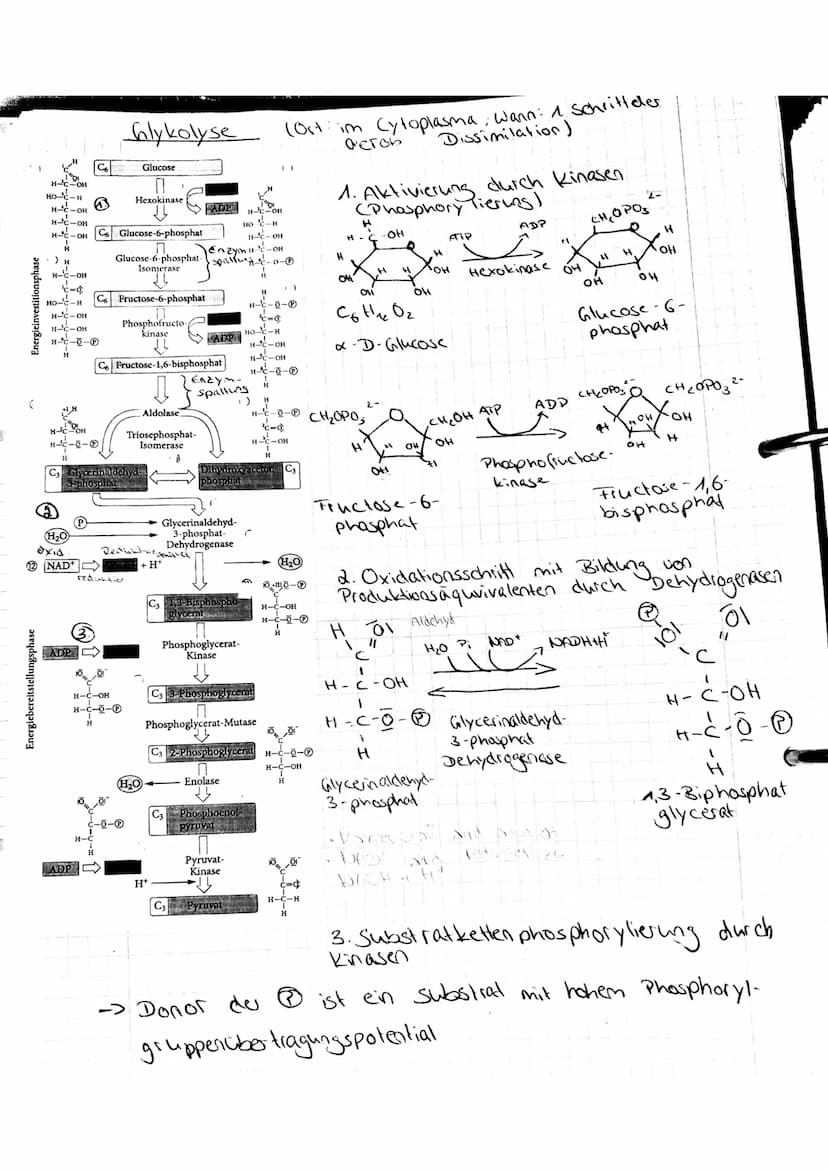 Glykolyse (Ort: im Cytoplasma, Wann: 1. Schritt der
aerob Dissimilation)
Energieinvestitionsphase
C₆ Glucose
①
Hexokinase
ADP
C₆ Glucose-6-phosphat
Glucose-6-phosphat-
Isomerase
Enzym-
spaltung
C₆ Fructose-6-phosphat
Phosphofructo
kinase
ADP
C₆ Fructose-1,6-bisphosphat
Enzym-
spaltung
Aldolase
Triosephosphat-
Isomerase
C₃ Glycerinaldehyd-
3-phosphat
Dihydroxyaceton-
phosphat C₃
②
P
H₂O
Glycerinaldehyd-
3-phosphat-
Dehydrogenase
Oxid
NAD⁺
+ H⁺
H₂O
Energiebereitstellungsphase
C₃ 1,3-Bisphospho-
glycerat
③
ADP
Phosphoglycerat-
Kinase
C₃ 3-Phosphoglycerat
Phosphoglycerat-Mutase
C₃ 2-Phosphoglycerat
H₂O
Enolase
C₃ Phosphoenol-
pyruvat
ADP
Pyruvat-
Kinase
H⁺
C₃ Pyruvat
1. Aktivierung durch Kinasen
(Phosphorylierung)
ATP ADP
Hexokinase
CH₂OPO₃ 2-
C₆H₁₂O₂
α-D-Glucose
Glucose-6-
phosphat
CH₂OPO₃ 2- CH₂OH ATP ADP CH₂OPO₃ 2- CH₂OPO₃ 2-
Phosphofructose-
kinase
Fructose-6-
phosphat
Fructose-1,6-
bisphosphat
2. Oxidationsschritt mit Bildung von
Produktionsäquivalenten durch Dehydrogenasen
Aldehyd
H₂O Pi NAD⁺ NADH+H⁺
Glycerinaldehyd-
3-phosphat
Dehydrogenase
Glycerinaldehyd-
3-phosphat
1,3-Biphosphat
glycerat
3. Substratkettenphosphorylierung durch
Kinasen
→ Donor des Ⓟ ist ein Substrat mit hohem Phosphoryl-
gruppenübertragungspotential